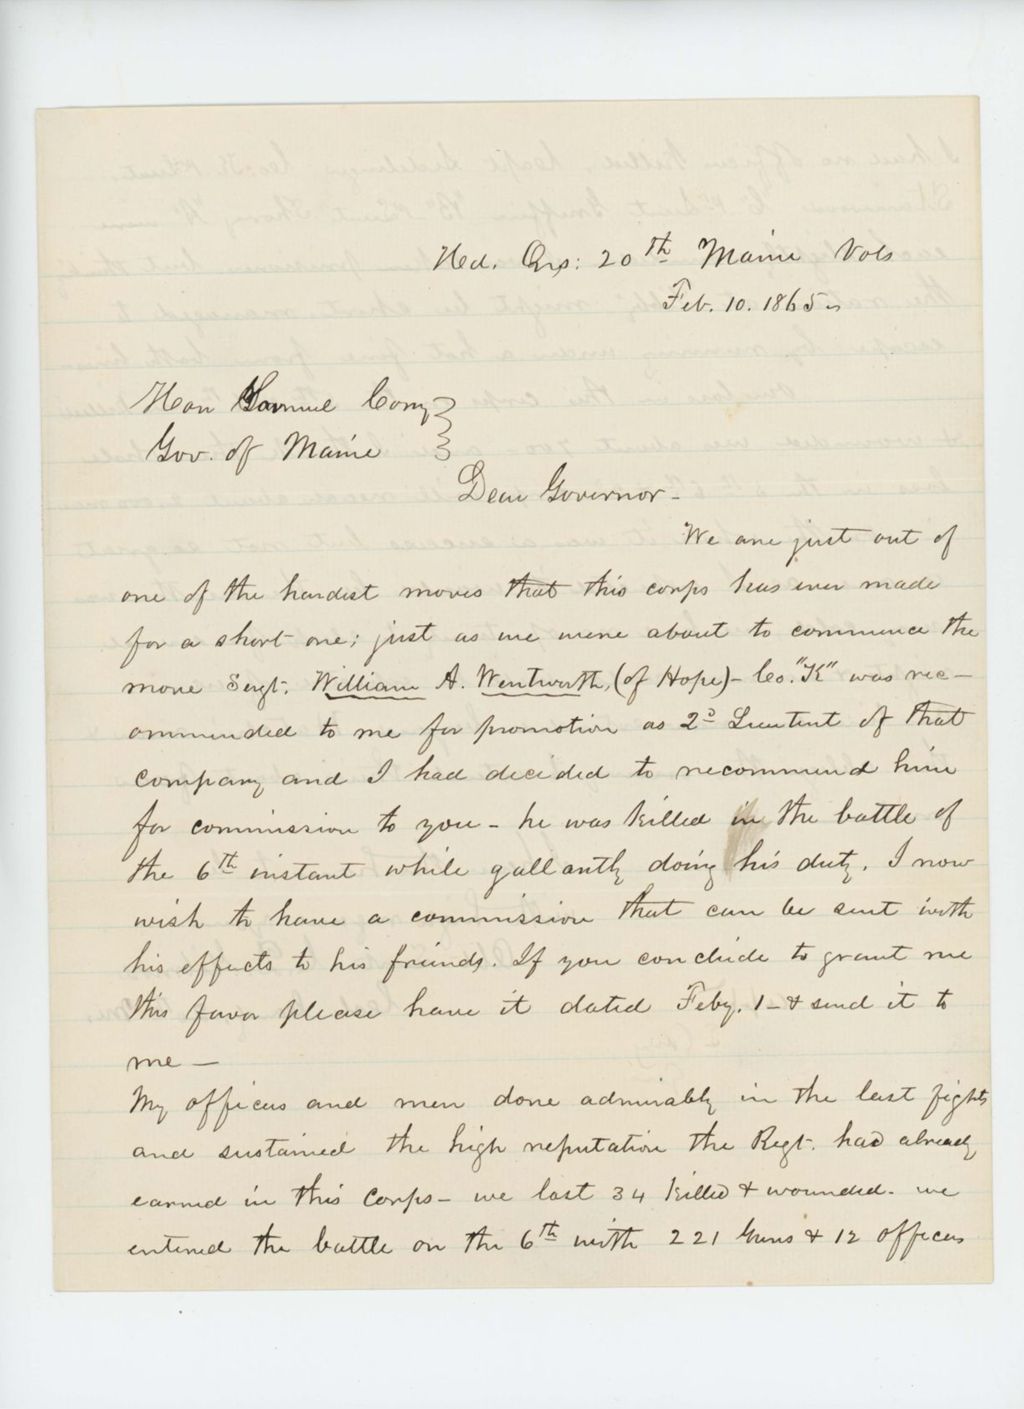 Hed. Qrs: 20th Maine Vols
Feb. 10. 1865
Hon Samuel Cony
Gov. of Maine
Dear Governor -
We are just out of
one of the hardest moves that this corps has ever made
for a short one; just as we were about to commence the
move Sergt. William A. Wentworth, (of Hope) - Co. "K" was rec-
ommended to me for promotion as 2d Lieutent of that
company and I had decided to recommend him
for commission to you - he was killed in the battle of
the 6th instant while gallantly doing his duty. I now
wish to have a commission that can be sent with
his effects to his friends. If you conclude to grant me
this favor please have it dated Feby. 1 - & send it to
me -
My officers and men done admirably in the last fights
and sustained the high reputation the Regt. had already
earned in this Corps - we lost 34 killed & wounded. we
entered the battle on the 6th with 221 Guns & 12 officers